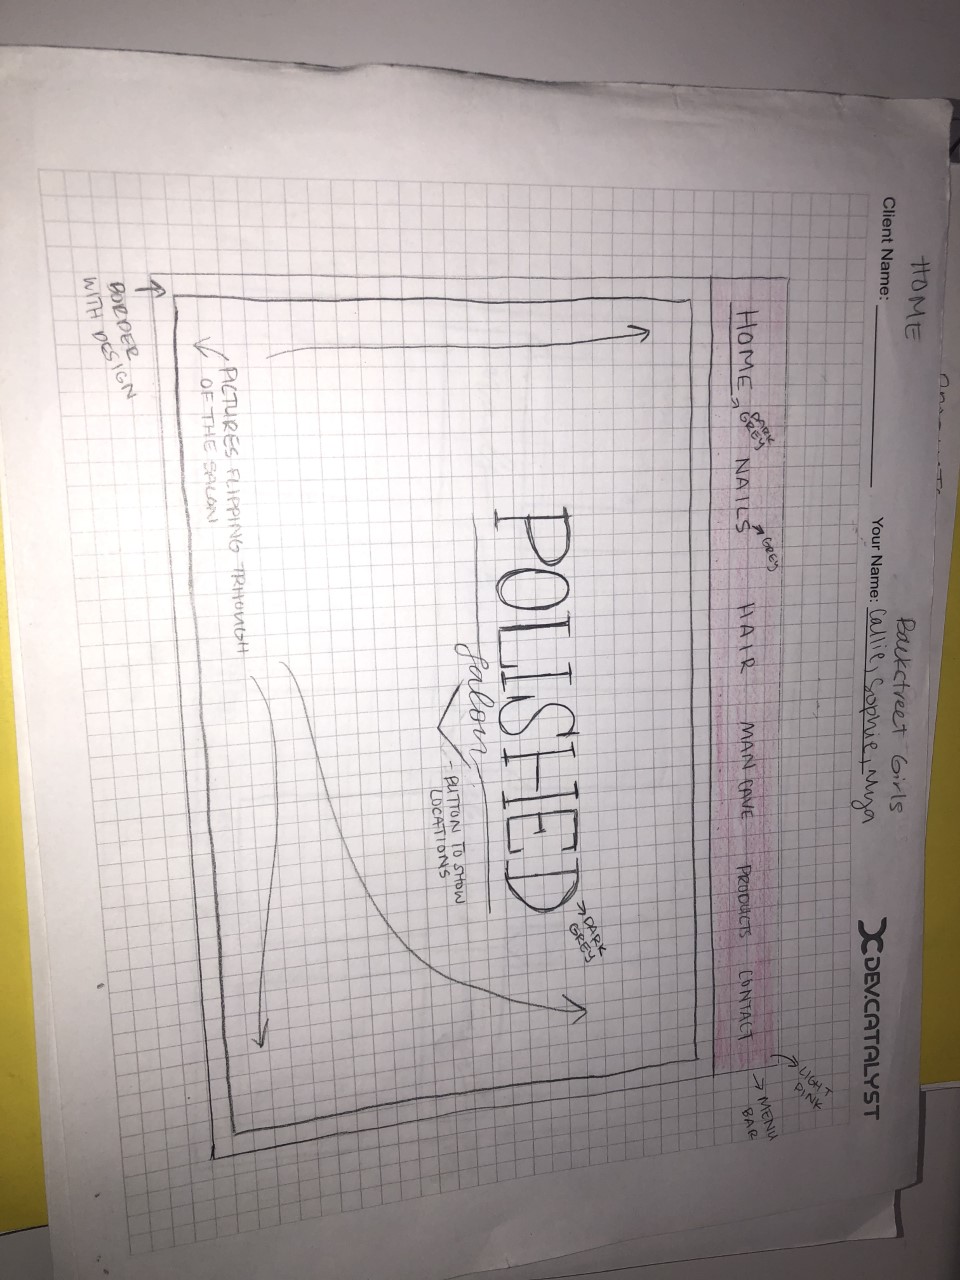 HOME
Backstreet Girls
Client Name:
Your Name: Callie, Sophie, Mya
DEV.CATALYST
LIGHT
PINK
HOME
DARK
GREY
NAILS
GREY
HAIR
MAN CAVE
PRODUCTS
CONTACT
MENU
BAR
POLISHED
DARK
GREY
Salon
- BUTTON TO SHOW
LOCATIONS
PICTURES FLIPPING TRHOUGH
OF THE SALON
BORDER
WITH DESIGN